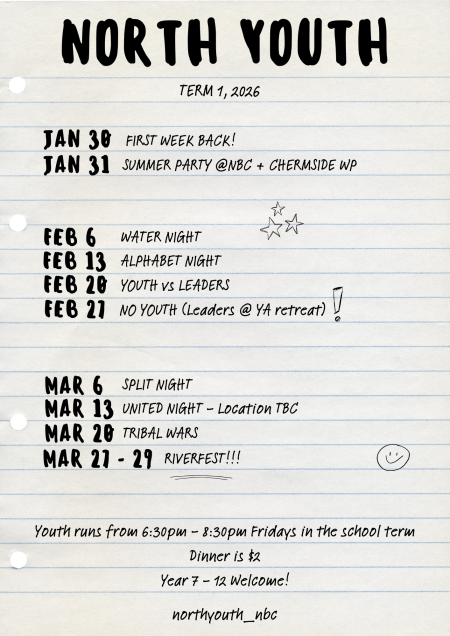 NORTH YOUTH
TERM 1, 2026
JAN 30 FIRST WEEK BACK!
JAN 31 SUMMER PARTY @NBC + CHERMSIDE WP
FEB 6 WATER NIGHT
FEB 13 ALPHABET NIGHT
FEB 20 YOUTH vs LEADERS
FEB 27 NO YOUTH (Leaders @ YA retreat)!
MAR 6 SPLIT NIGHT
MAR 13 UNITED NIGHT - Location TBC
MAR 20 TRIBAL WARS
MAR 27 - 29 RIVERFEST!!!
Youth runs from 6:30pm - 8:30pm Fridays in the school term
Dinner is $2
Year 7 - 12 Welcome!
northyouth_nbc